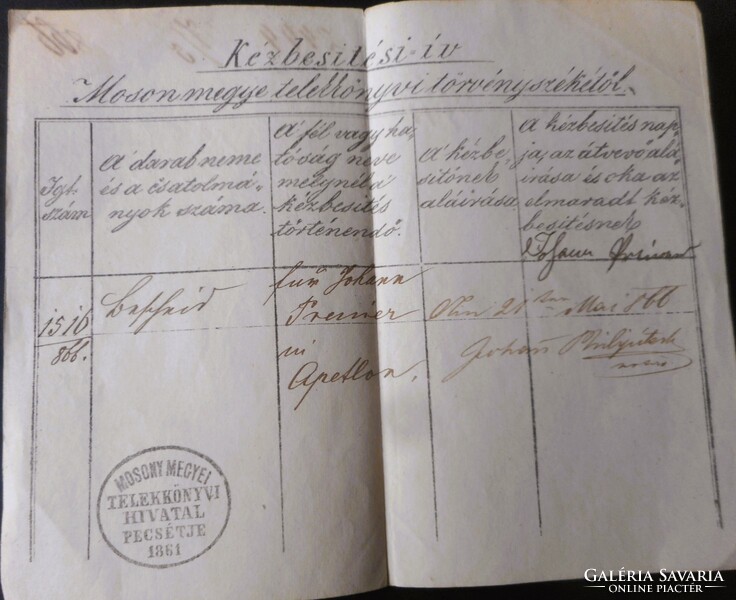 Kézbesitési-iv
Moson megye telekkönyvi törvényszékétöl.
Igt.
szám
A darab neme
és a csatolmá-
nyok száma.
A fél vagy ha-
tóság neve
melynél a
kézbesités
történendő.
A kézbe-
sitőnek
aláirása.
A kézbesités nap-
ja, az átvevő alá-
irása és oka az
elmaradt kéz-
besitésnek
Johann
1516
866.
Bescheid
für Johann
Premier
in
Apetlon.
21 ten Mai 866
Johann
MOSONY MEGYEI
TELEKKÖNYVI
HIVATAL
PECSÉTJE
1861
GALÉRIA SAVARIA
ONLINE PIACTÉR